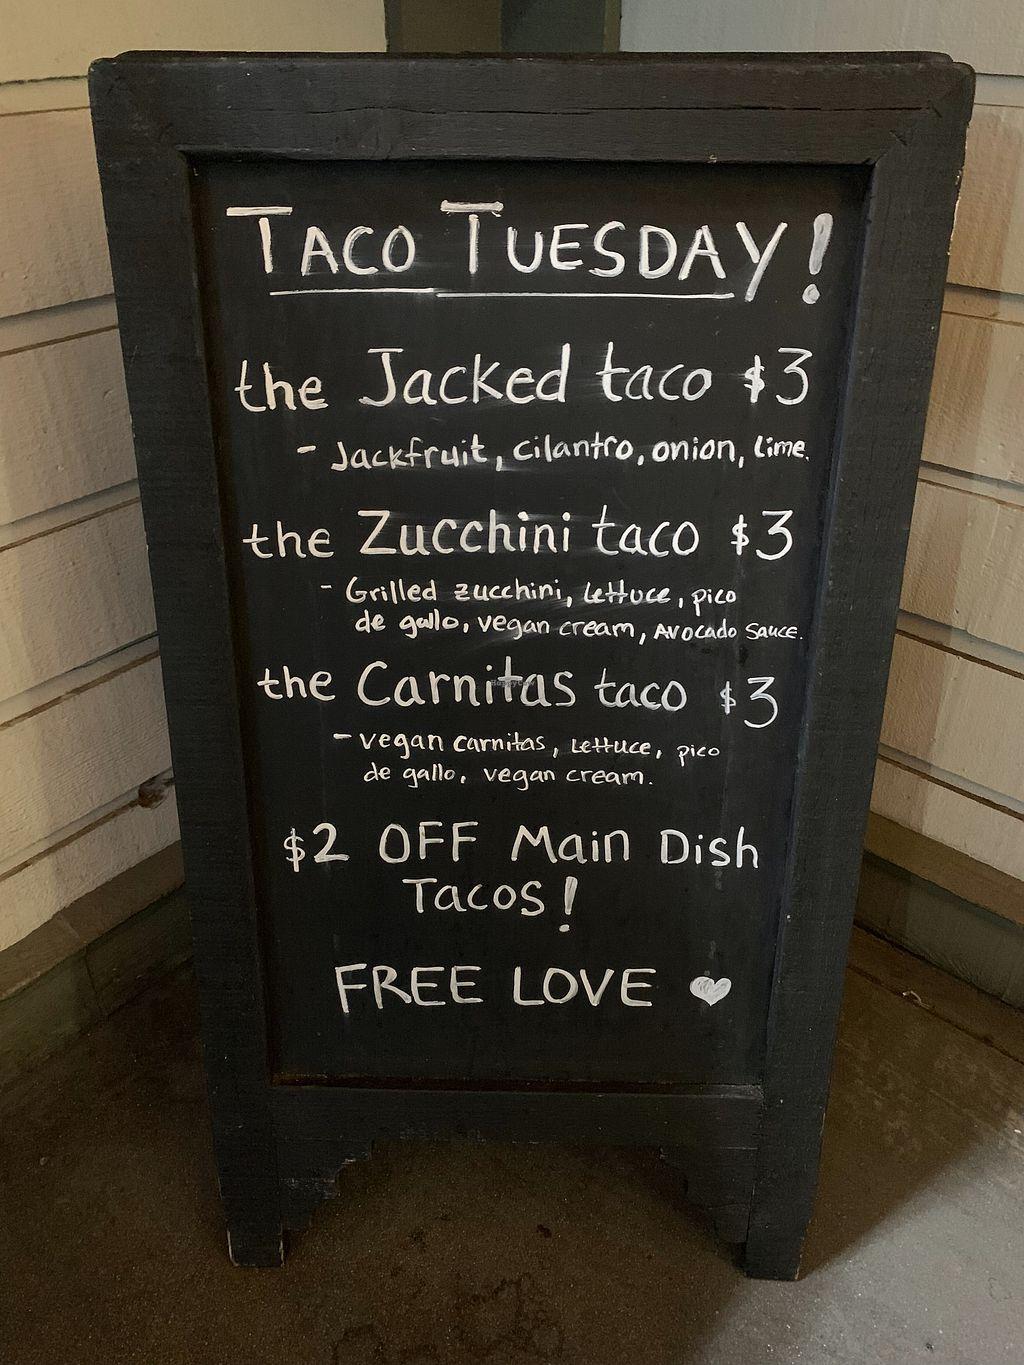 TACO TUESDAY!
the Jacked taco $3
- Jackfruit, cilantro, onion, lime.
the Zucchini taco $3
- Grilled zucchini, lettuce, pico
de gallo, vegan cream, Avocado Sauce.
the Carnitas taco $3
- vegan carnitas, lettuce, pico
de gallo, vegan cream.
$2 OFF Main Dish
Tacos!
FREE LOVE ♥